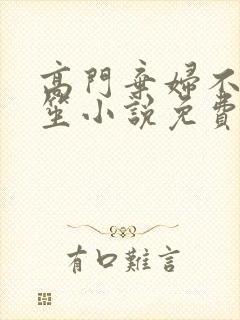 高門棄婦不
笙小說免費
有口難言